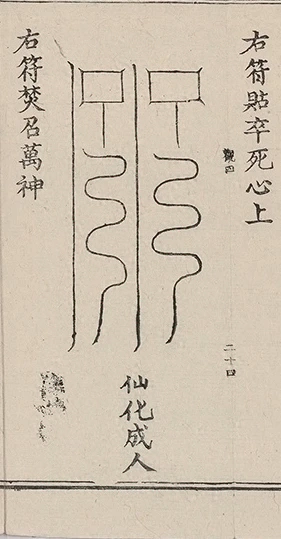 右符貼卒死心上
二十四
仙化成人
右符焚召萬神